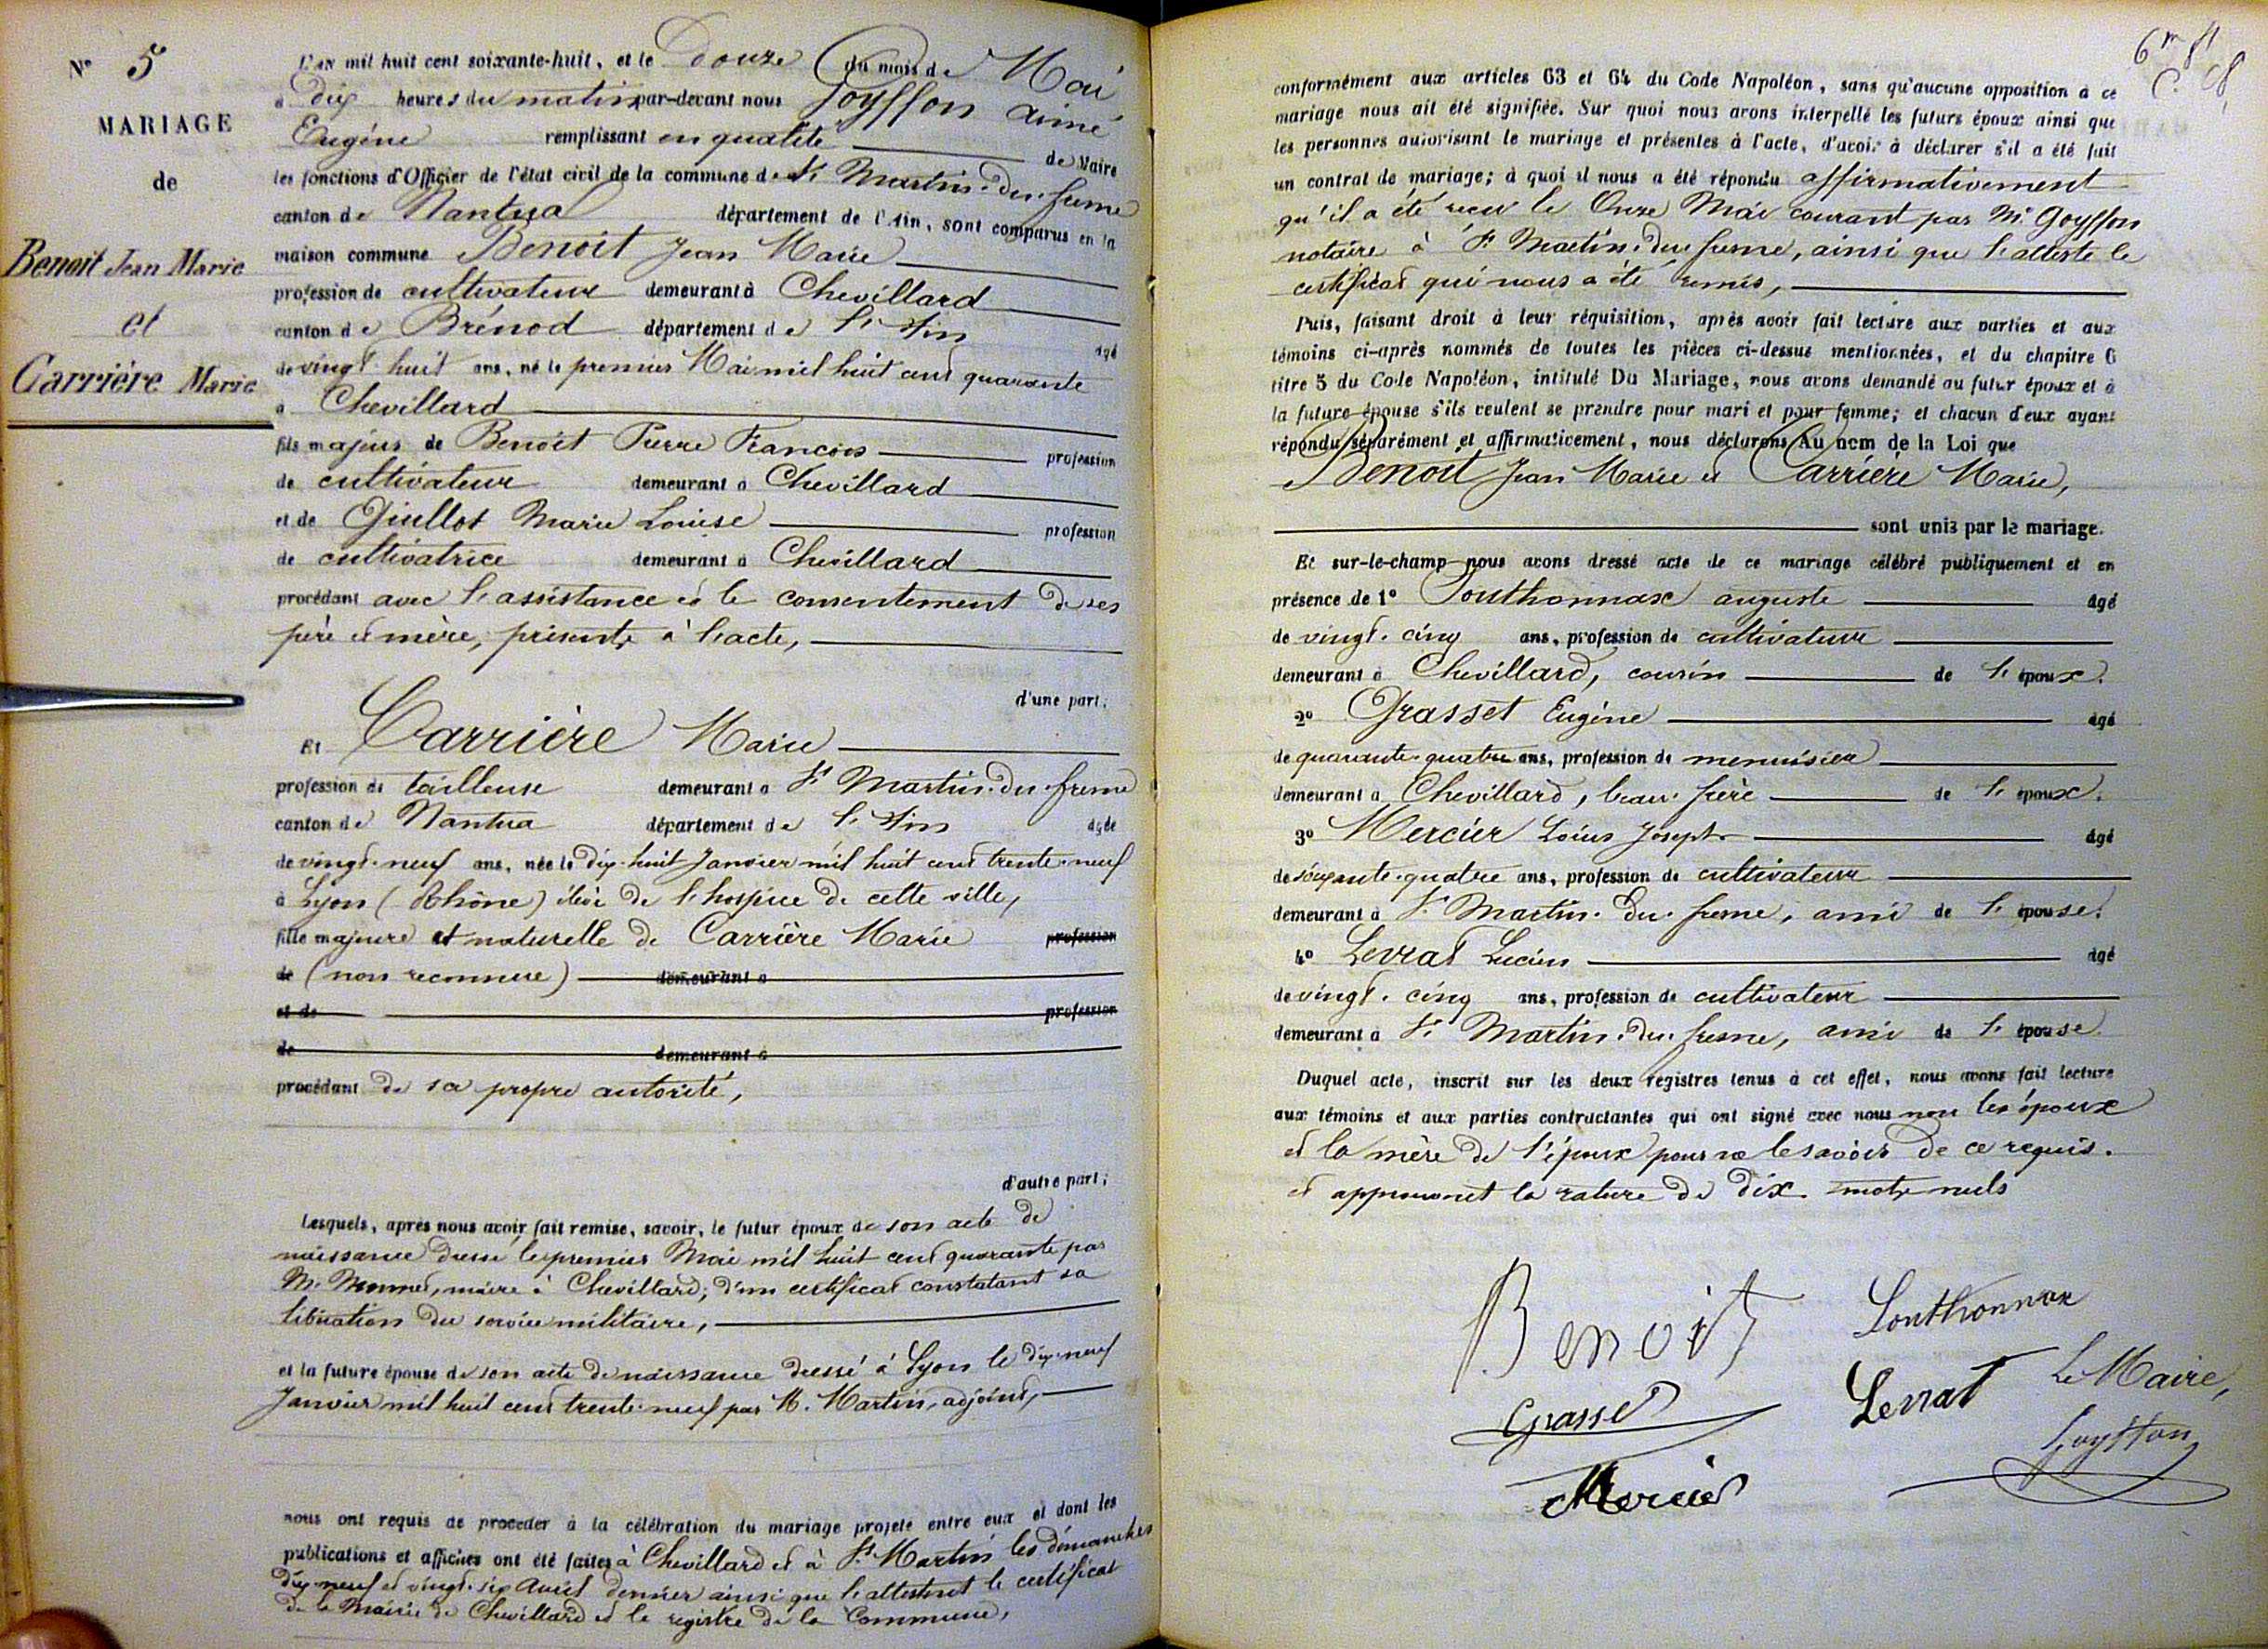 N° 5
MARIAGE
de
Benoit Jean Marie
et
Carrière Marie
L'AN mil huit cent soixante-huit, et le Douze du mois de Mai
à dix heures du matin par-devant nous Goyffon aimé
Eugéne remplissant en qualité de Maire
les fonctions d'Officier de l'état civil de la commune de St Martin-du-fresne
canton de Nantua département de l'Ain, sont comparus en la
maison commune Benoit Jean Marie
profession de cultivateur demeurant à Chevillard
canton de Brénod département de l'Ain âgé
de vingt huit ans, né le premier Mai mil huit cent quarante
à Chevillard
fils majeur de Benoit Pierre François profession
de cultivateur demeurant à Chevillard
et de Guillot Marie Louise profession
de cultivatrice demeurant à Chevillard
procédant avec l'assistance et le consentement de ses
père et mère, présents à l'acte,
d'une part;
Et Carrière Marie
profession de tailleuse demeurant à St Martin-du-fresne
canton de Nantua département de l'Ain âgée
de vingt-neuf ans, née le dix-huit Janvier mil huit cent trente-neuf
à Lyon (Rhône) élève de l'hospice de cette ville,
fille majeure et naturelle de Carrière Marie profession
de (non reconnue) demeurant à
et de profession
de demeurant à
procédant de sa propre autorité,
d'autre part;
Lesquels, après nous avoir fait remise, savoir, le futur époux de son acte de
naissance dressé le premier Mai mil huit cent quarante par
Mr Monnet, maire à Chevillard; d'un certificat constatant sa
libération du service militaire,
et la future épouse de son acte de naissance dressé à Lyon le dix-neuf
Janvier mil huit cent trente-neuf par M. Martin, adjoint,
nous ont requis de procéder à la célébration du mariage projeté entre eux et dont les
publications et affiches ont été faites à Chevillard et à St Martin les dimanches
dix neuf et vingt-six Avril dernier ainsi que l'attestent le certificat
de la Mairie de Chevillard et le registre de la Commune,
conformément aux articles 63 et 64 du Code Napoléon, sans qu'aucune opposition à ce
mariage nous ait été signifiée. Sur quoi nous avons interpellé les futurs époux ainsi que
les personnes autorisant le mariage et présentes à l'acte, d'avoir à déclarer s'il a été fait
un contrat de mariage; à quoi il nous a été répondu affirmativement
qu'il a été reçu le Onze Mai courant par Me Goyffon
notaire à St Martin-du-fresne, ainsi que l'atteste le
certificat qui nous a été remis,
Puis, faisant droit à leur réquisition, après avoir fait lecture aux parties et aux
témoins ci-après nommés de toutes les pièces ci-dessus mentionnées, et du chapitre 6
titre 5 du Code Napoléon, intitulé Du Mariage, nous avons demandé au futur époux et à
la future épouse s'ils veulent se prendre pour mari et pour femme; et chacun d'eux ayant
répondu séparément et affirmativement, nous déclarons Au nom de la Loi que
Benoit Jean Marie et Carrière Marie,
sont unis par le mariage.
Et sur-le-champ nous avons dressé acte de ce mariage célébré publiquement et en
présence de 1° Jouthonnax auguste âgé
de vingt-cinq ans, profession de cultivateur
demeurant à Chevillard, cousin de l'époux.
2° Grasset Eugéne âgé
de quarante-quatre ans, profession de menuisier
demeurant à Chevillard, beau-frère de l'époux.
3° Mercier Louis Joseph âgé
de soixante-quatre ans, profession de cultivateur
demeurant à St Martin-du-fresne, ami de l'épouse.
4° Levrat Lucien âgé
de vingt-cinq ans, profession de cultivateur
demeurant à St Martin-du-fresne, ami de l'épouse
Duquel acte, inscrit sur les deux registres tenus à cet effet, nous avons fait lecture
aux témoins et aux parties contractantes qui ont signé avec nous non les époux
et la mère de l'époux pour ne le savoir de ce requis.
et approuvent la rature de dix mots nuls
Benoit Jouthonnax
Grasset Levrat Le Maire,
Mercier Goyffon